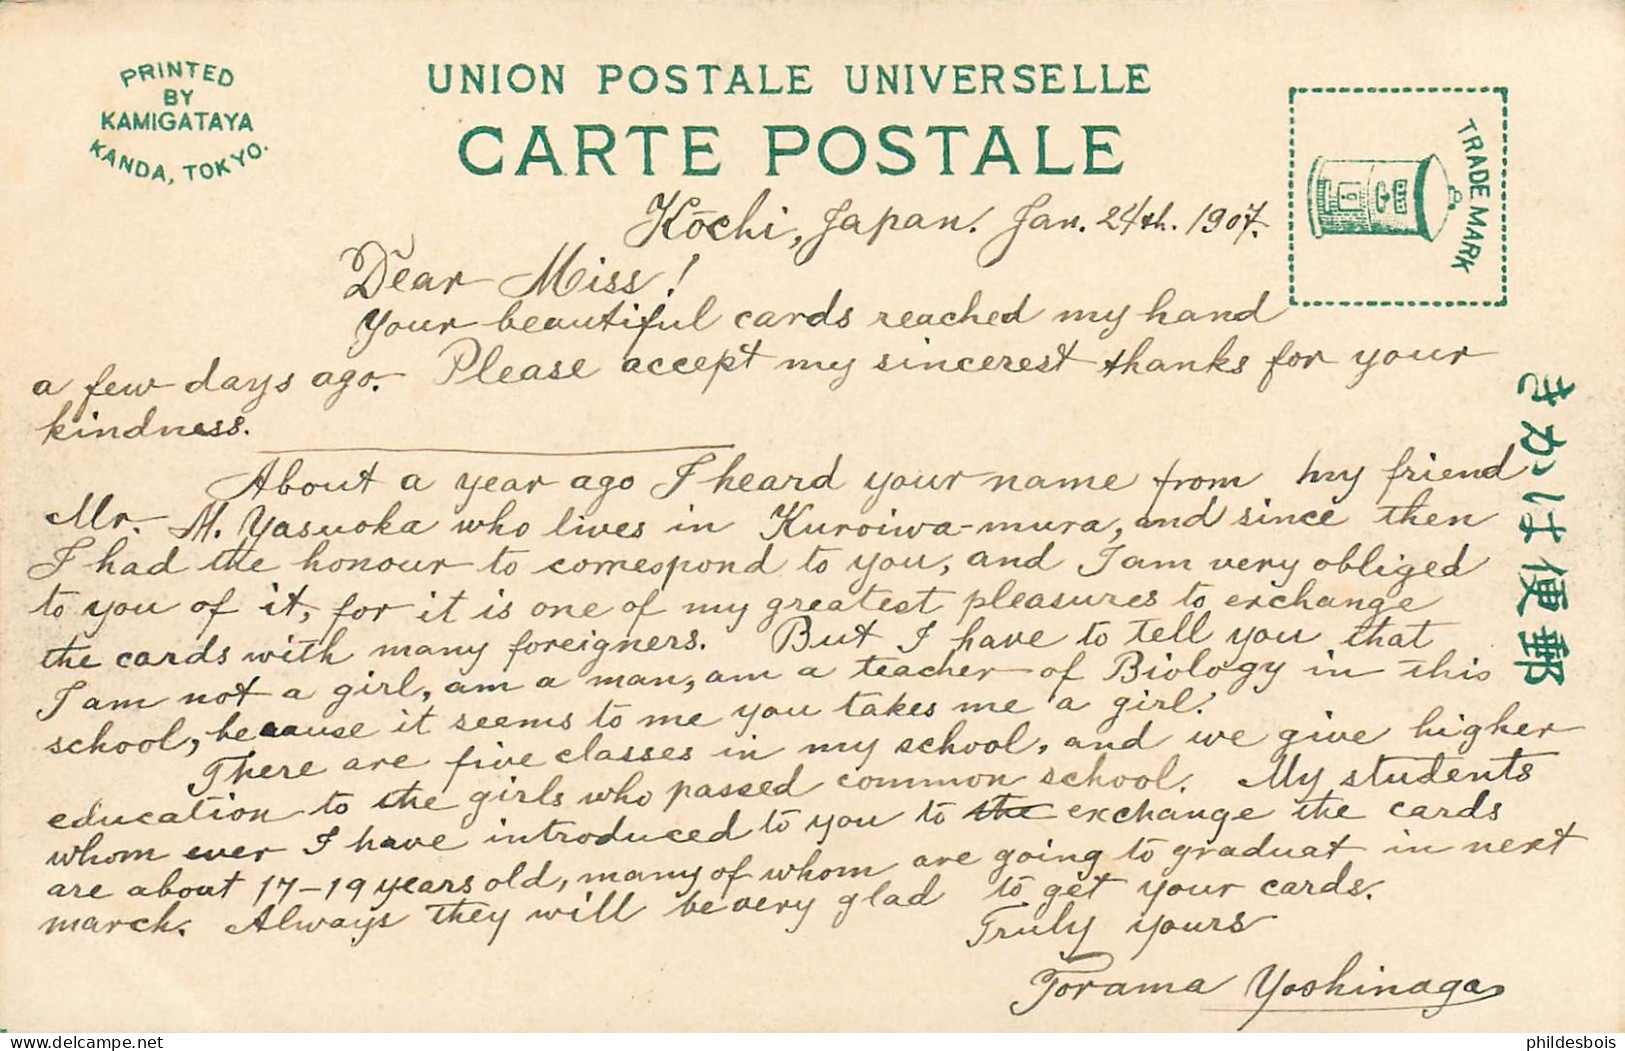 PRINTED
BY
KAMIGATAYA
KANDA, TOKYO.
UNION POSTALE UNIVERSELLE
CARTE POSTALE
TRADE MARK
きかは便郵
Kōchi, Japan. Jan. 24th. 1907.
Dear Miss!
Your beautiful cards reached my hand
a few days ago. Please accept my sincerest thanks for your
kindness.
About a year ago I heard your name from my friend
Mr. M. Yasuoka who lives in Kuroiwa-mura, and since then
I had the honour to correspond to you, and I am very obliged
to you of it, for it is one of my greatest pleasures to exchange
the cards with many foreigners. But I have to tell you that
I am not a girl, am a man, am a teacher of Biology in this
school, because it seems to me you takes me a girl.
There are five classes in my school, and we give higher
education to the girls who passed common school. My students
whom ever I have introduced to you to the exchange the cards
are about 17-19 years old, many of whom are going to graduat in next
march. Always they will be very glad to get your cards.
Truly yours
Torama Yoshinaga
delcampe.net
phildesbois